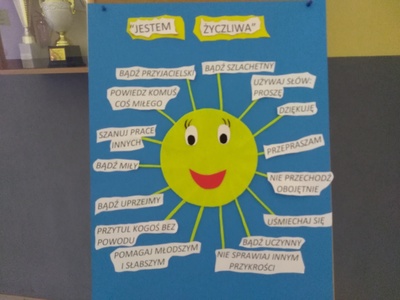 "JESTEM ŻYCZLIWA"
BĄDŹ PRZYJACIELSKI
BĄDŹ SZLACHETNY
POWIEDZ KOMUŚ
COŚ MIŁEGO
UŻYWAJ SŁÓW:
PROSZĘ
DZIĘKUJĘ
SZANUJ PRACE
INNYCH
PRZEPRASZAM
BĄDŹ MIŁY
NIE PRZECHODŹ
OBOJĘTNIE
BĄDŹ UPRZEJMY
UŚMIECHAJ SIĘ
PRZYTUL KOGOŚ BEZ
POWODU
BĄDŹ UCZYNNY
POMAGAJ MŁODSZYM
I SŁABSZYM
NIE SPRAWIAJ INNYM
PRZYKROŚCI